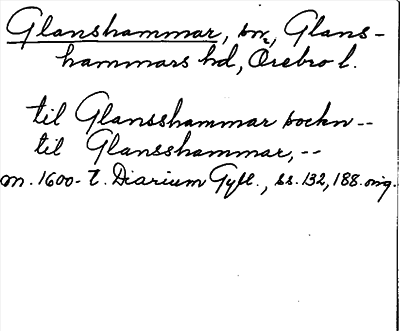 Glanshammar, sn, Glans-
hammars hd, Örebro l.
til Glansshammar sockn --
til Glansshammar, --
m. 1600-t. Diarium Gyll., ss. 132, 188. orig.